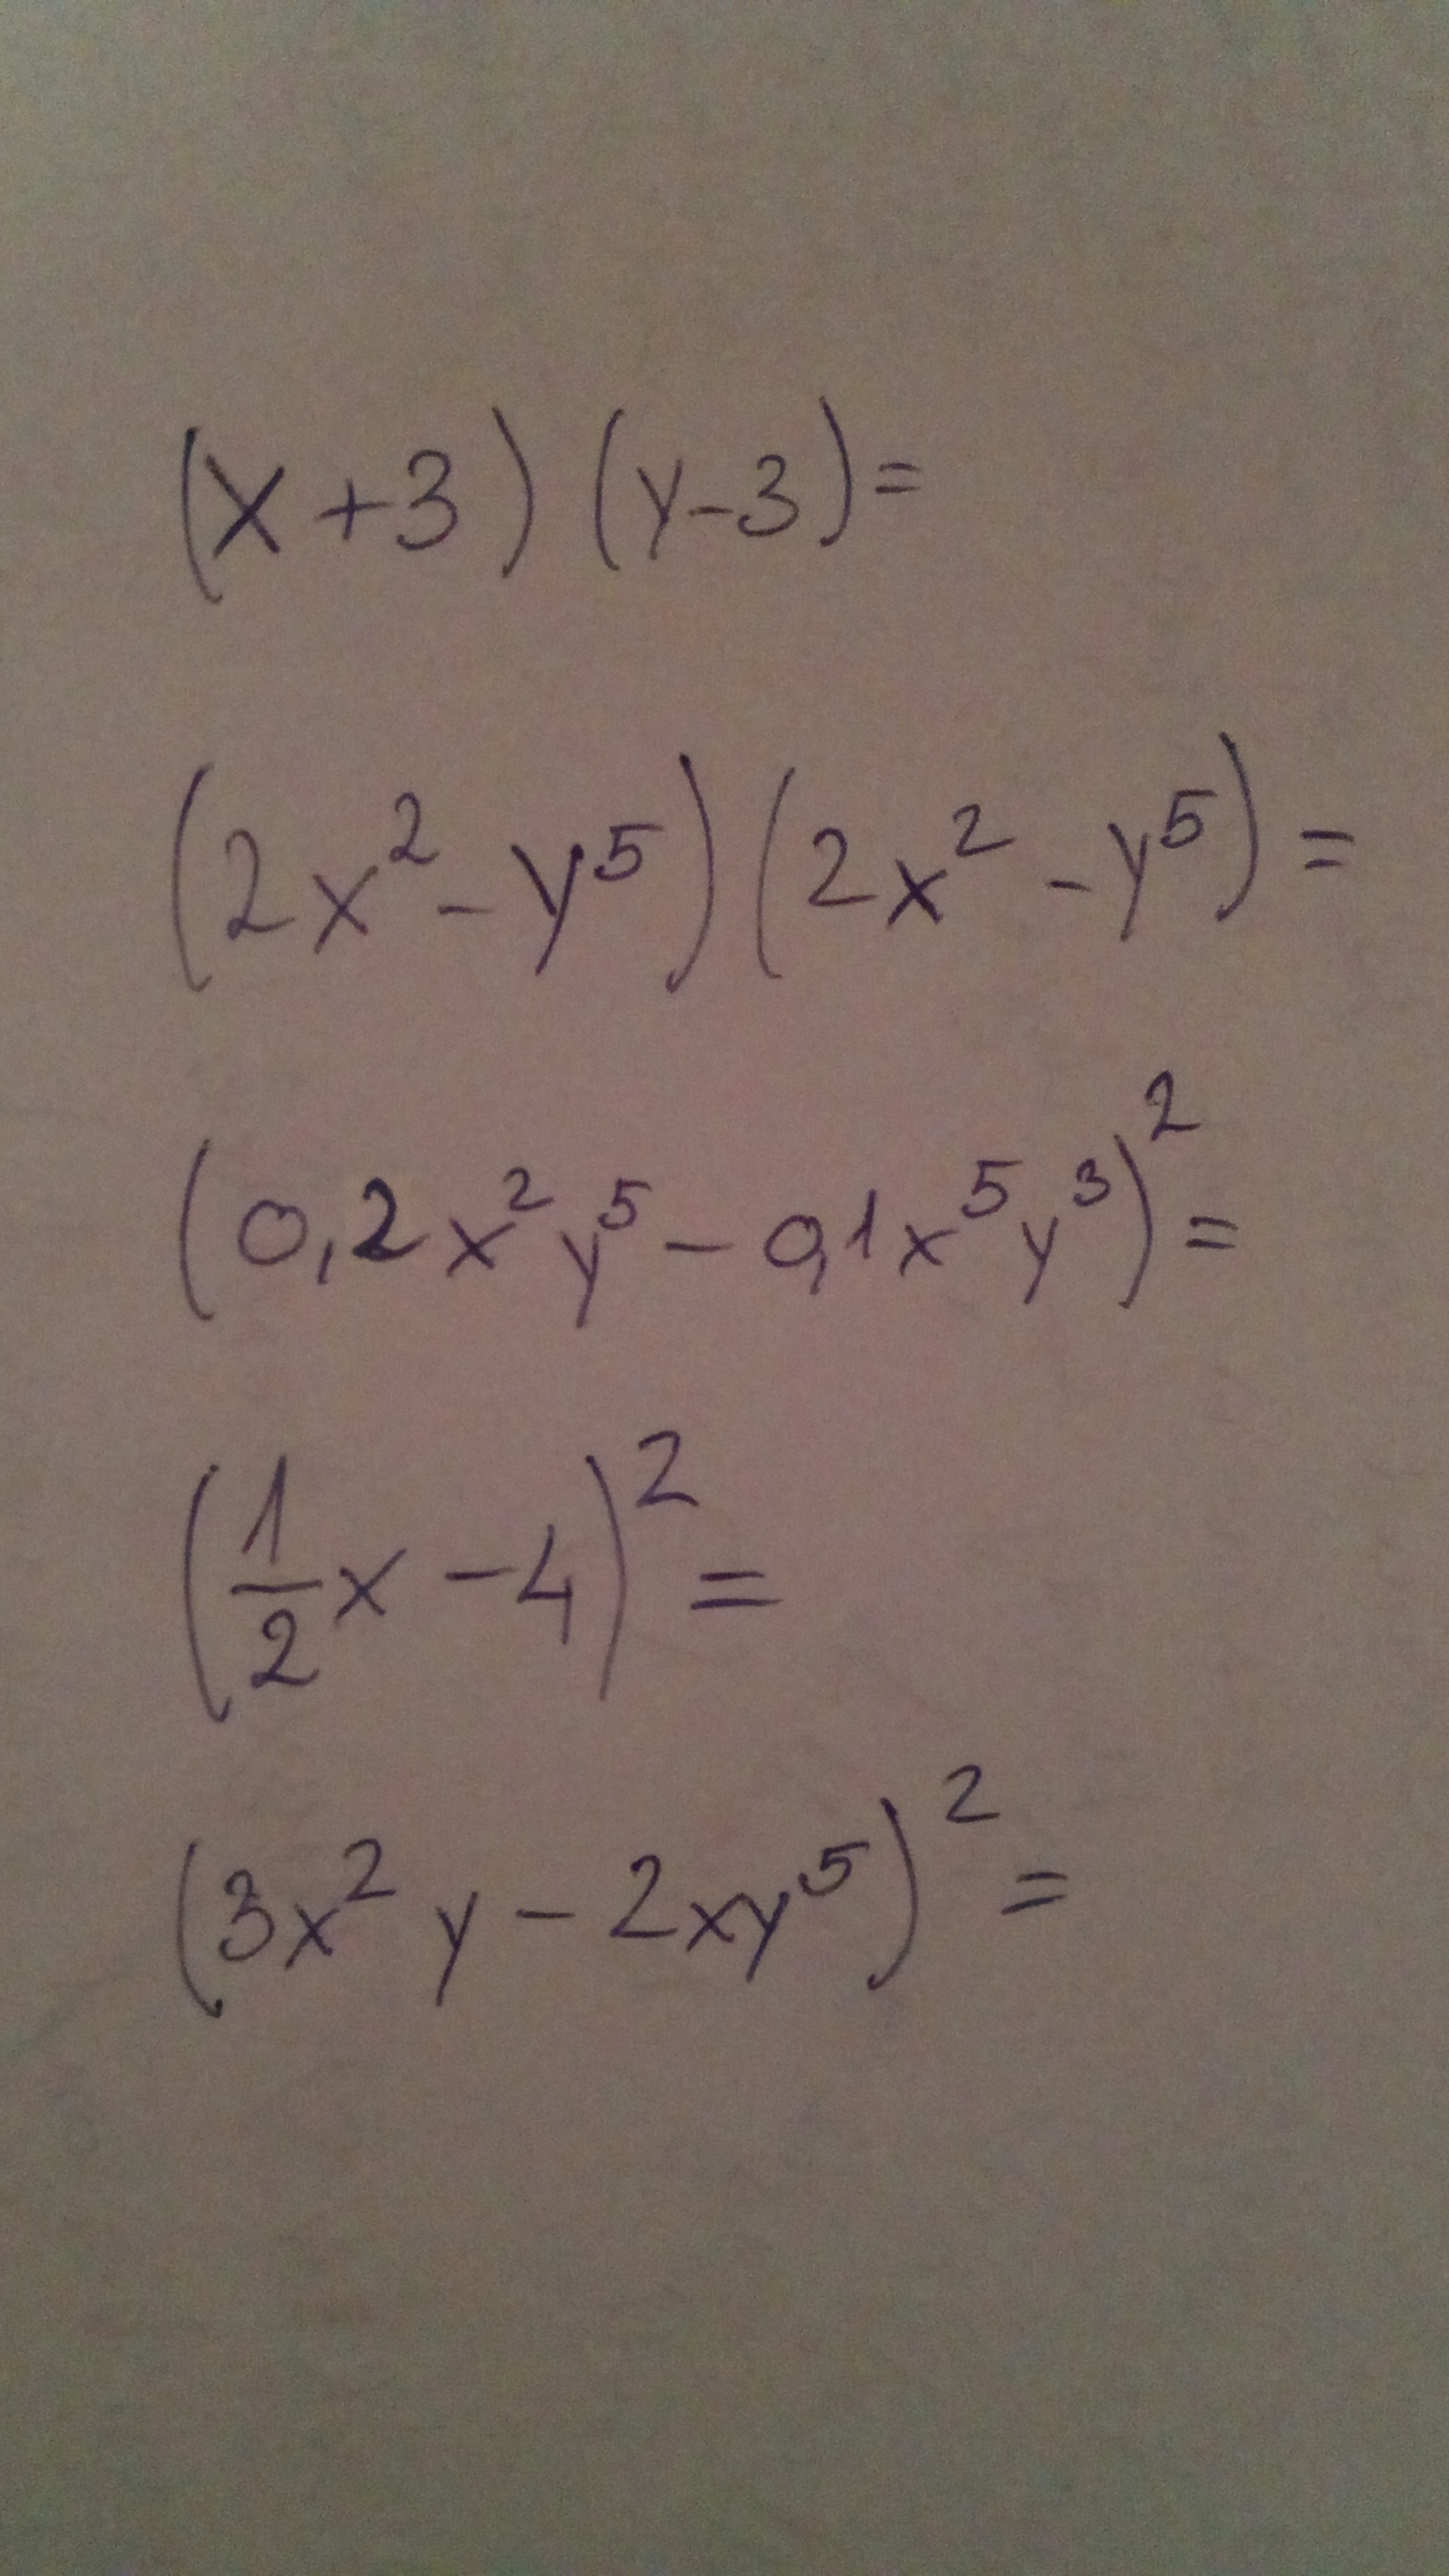 (x+3)(y-3)=
(2x²-y⁵)(2x²-y⁵)=
(0,2x²y⁵-0,1x⁵y³)²=
(1/2x-4)²=
(3x²y-2xy⁵)²=